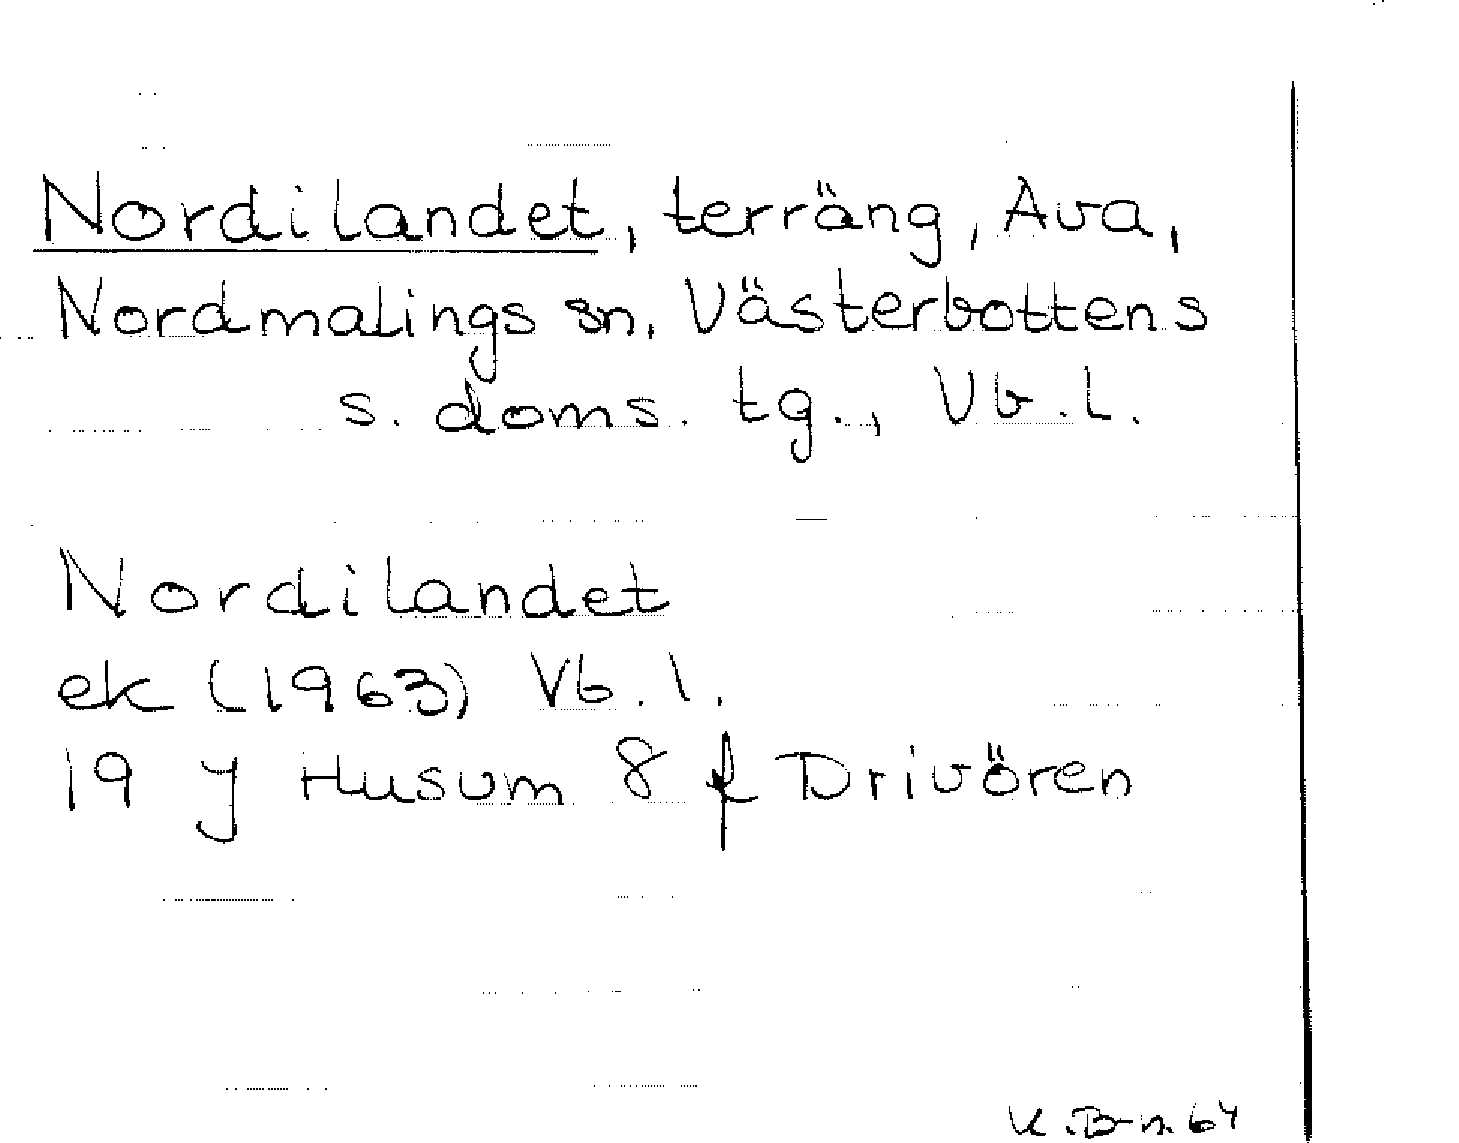 Nordilandet, terräng, Ava,
Nordmalings sn, Västerbottens
s. doms. tg., Vb. l.
Nordilandet
ek (1963) Vb. l.
19 J Husum 8 f Drivören
K. B-n. 64